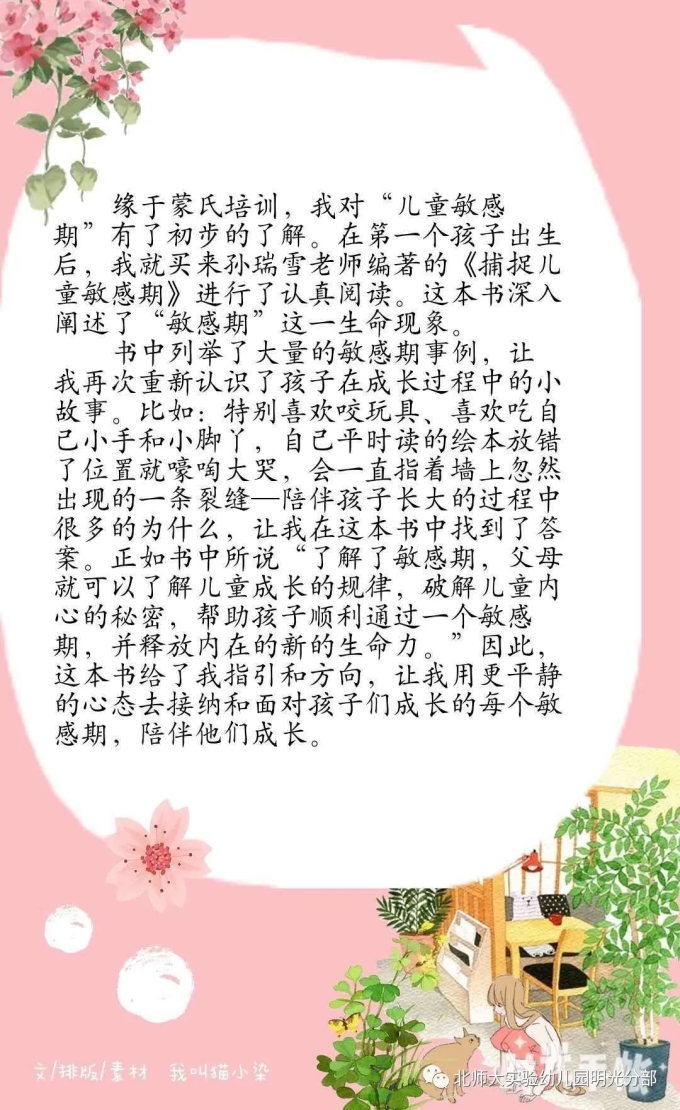 缘于蒙氏培训，我对“儿童敏感
期”有了初步的了解。在第一个孩子出生
后，我就买来孙瑞雪老师编著的《捕捉儿
童敏感期》进行了认真阅读。这本书深入
阐述了“敏感期”这一生命现象。
书中列举了大量的敏感期事例，让
我再次重新认识了孩子在成长过程中的小
故事。比如：特别喜欢咬玩具、喜欢吃自
己小手和小脚丫，自己平时读的绘本放错
了位置就嚎啕大哭，会一直指着墙上忽然
出现的一条裂缝—陪伴孩子长大的过程中
很多的为什么，让我在这本书中找到了答
案。正如书中所说“了解了敏感期，父母
就可以了解儿童成长的规律，破解儿童内
心的秘密，帮助孩子顺利通过一个敏感
期，并释放内在的新的生命力。”因此，
这本书给了我指引和方向，让我用更平静
的心态去接纳和面对孩子们成长的每个敏
感期，陪伴他们成长。
文/排版/素材 我叫猫小染
时光手帐
北师大实验幼儿园明光分部